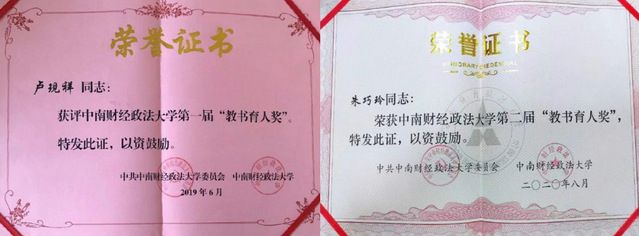 荣誉证书
卢现祥 同志：
获评中南财经政法大学第一届“教书育人奖”。
特发此证，以资鼓励。
中共中南财经政法大学委员会 中南财经政法大学
2019年6月
荣誉证书
HONORARY CREDENTIAL
朱巧玲同志：
荣获中南财经政法大学第二届“教书育人奖”，
特发此证，以资鼓励。
中共中南财经政法大学委员会 中南财经政法大学
二〇二〇年八月